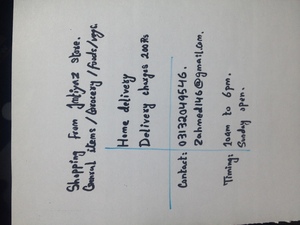 Shopping from Imtiyaz store.
General items / Grocery / foods / vege.
Home delivery
Delivery charges 200Rs
Contact: 03132049546.
Zahmed146@gmail.com.
Timing: 10am to 6pm.
Sunday open.